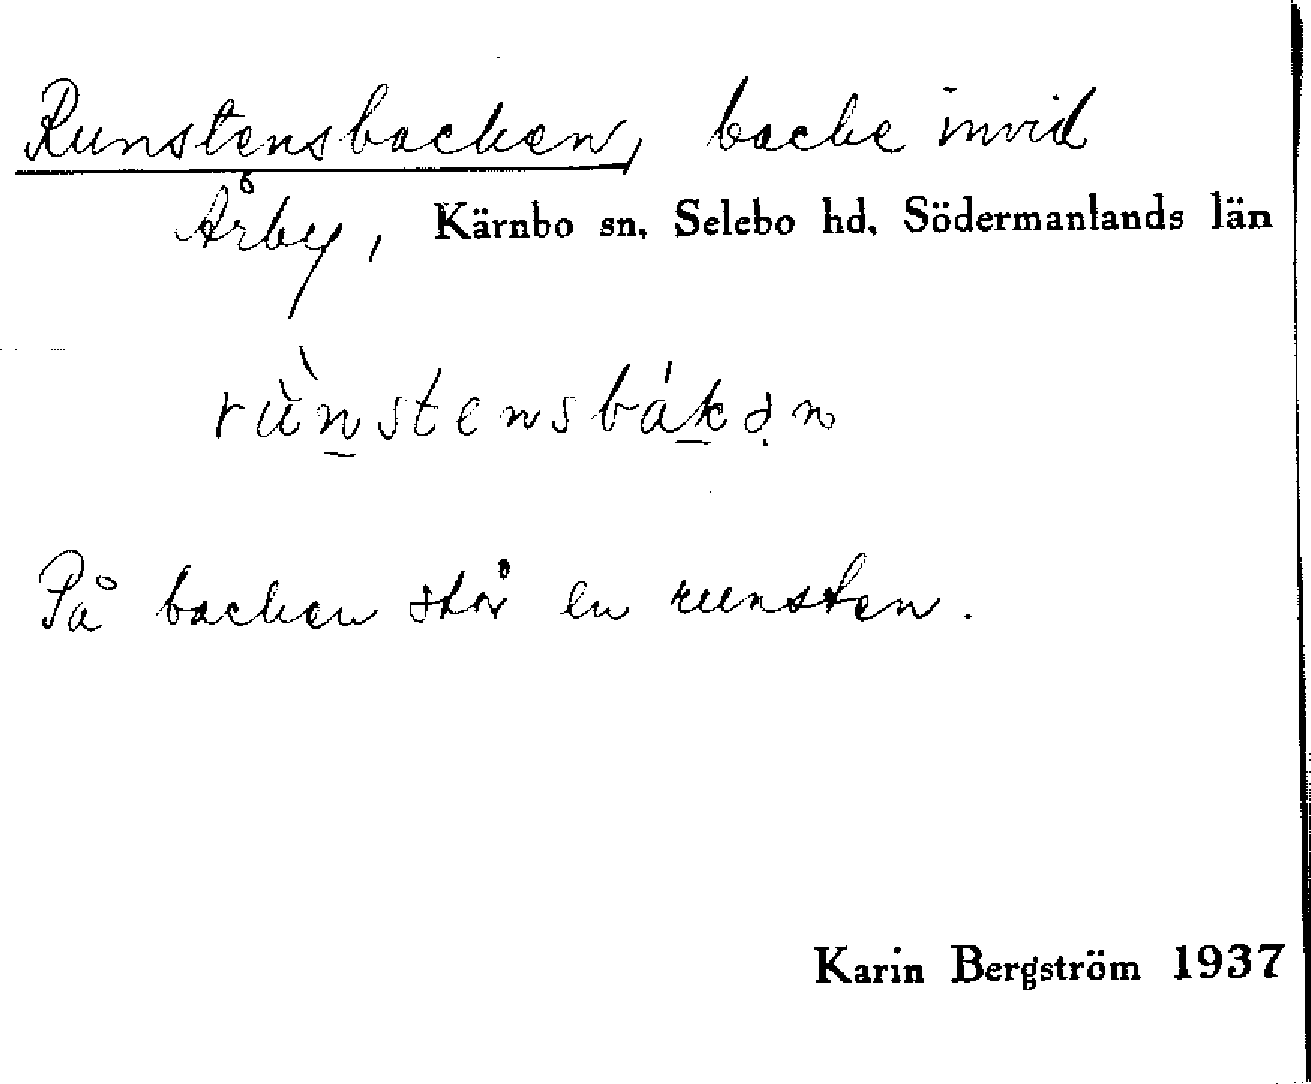 Runstensbacken, backe invid
Årby, Kärnbo sn, Selebo hd, Södermanlands län
rùn̲stensbák̲ə̣n
På backen står en runsten.
Karin Bergström 1937